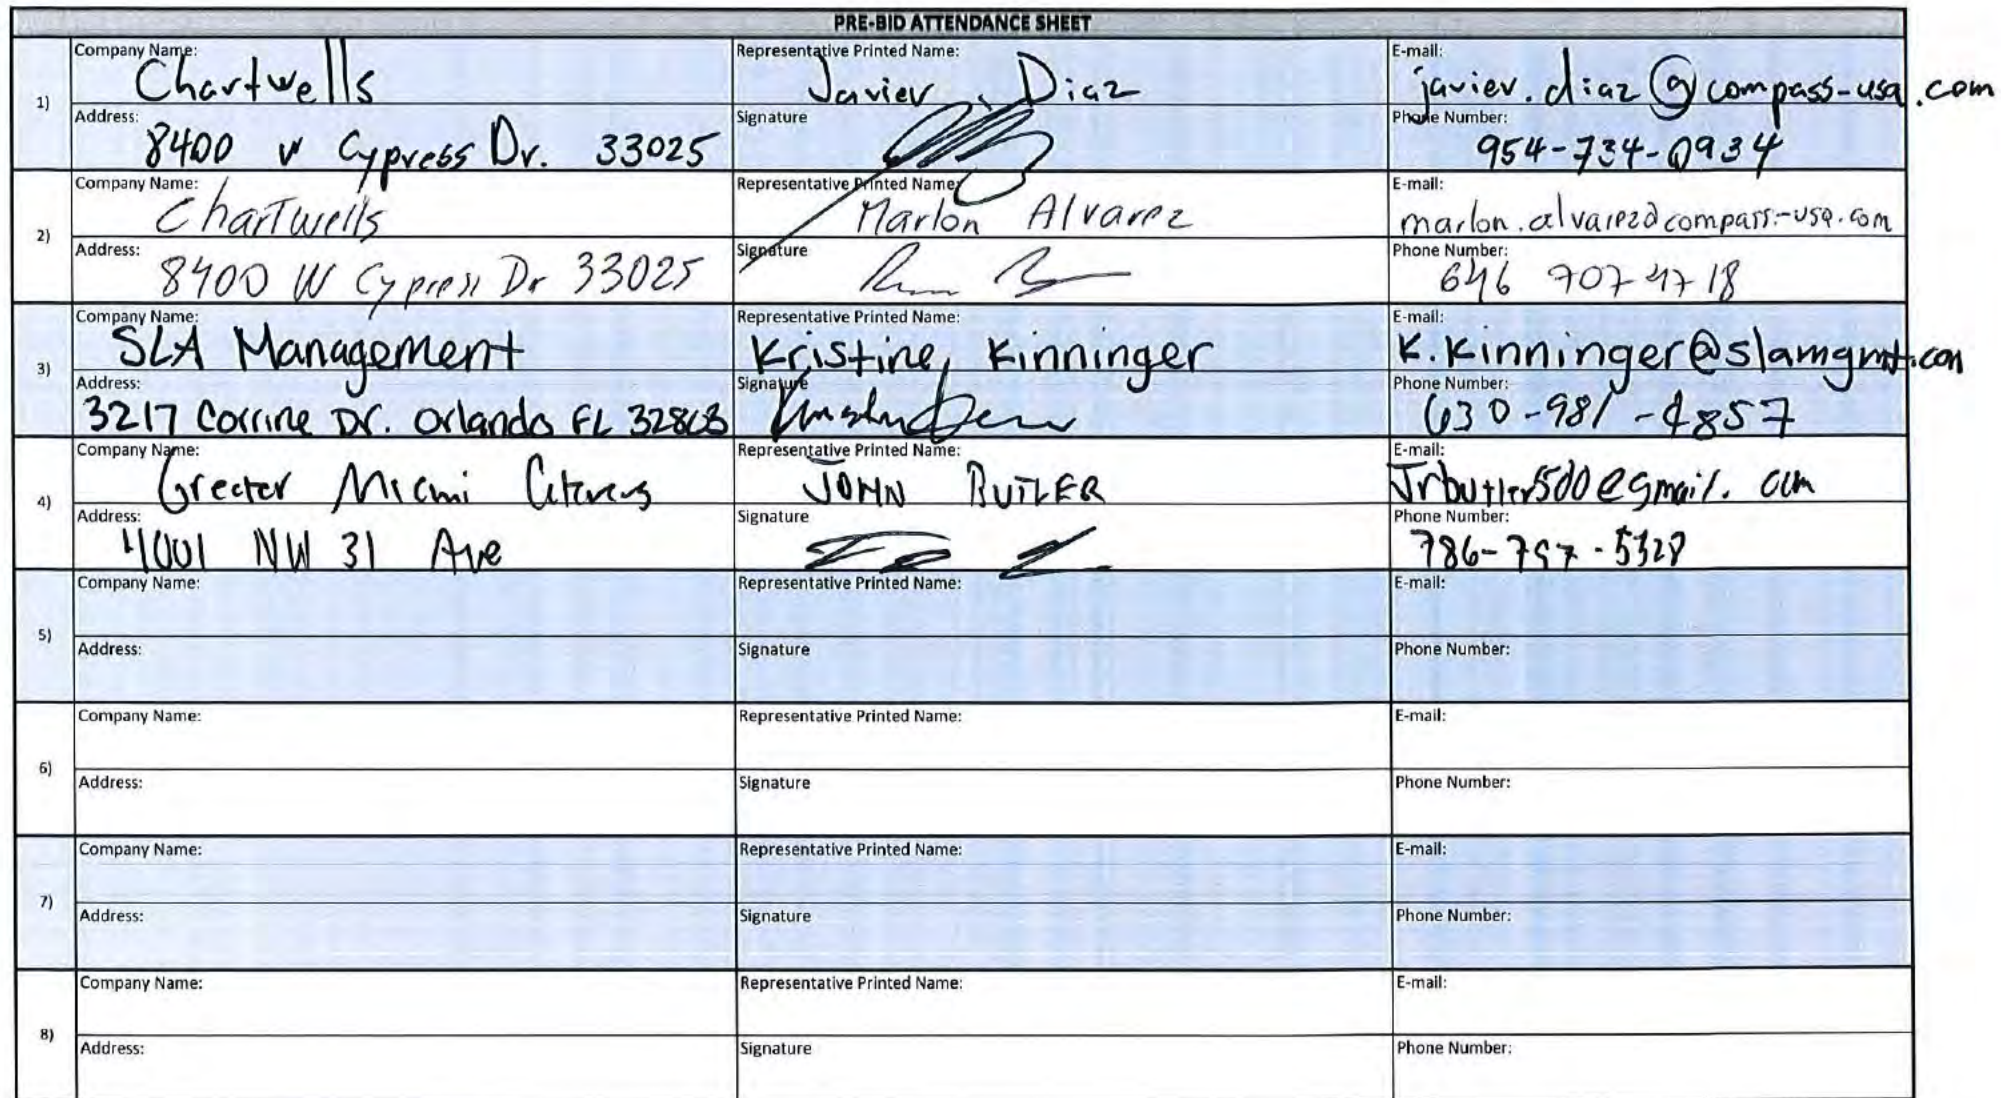 PRE-BID ATTENDANCE SHEET
1)
Company Name: Chartwells
Representative Printed Name: Javier Diaz
E-mail: javier.diaz@compass-usa.com
Address: 8400 W Cypress Dr. 33025
Signature
Phone Number: 954-734-0934
2)
Company Name: Chartwells
Representative Printed Name: Marlon Alvarez
E-mail: marlon.alvarez@compass-usa.com
Address: 8400 W Cypress Dr 33025
Signature
Phone Number: 646 707 4718
3)
Company Name: SLA Management
Representative Printed Name: Kristine Kinninger
E-mail: K.Kinninger@slamgmt.com
Address: 3217 Corrine Dr. Orlando FL 32803
Signature
Phone Number: 630-981-4857
4)
Company Name: Greater Miami Caterers
Representative Printed Name: JOHN BUTLER
E-mail: Jrbutler500@gmail.com
Address: 4001 NW 31 Ave
Signature
Phone Number: 786-797-5328
5)
Company Name:
Representative Printed Name:
E-mail:
Address:
Signature
Phone Number:
6)
Company Name:
Representative Printed Name:
E-mail:
Address:
Signature
Phone Number:
7)
Company Name:
Representative Printed Name:
E-mail:
Address:
Signature
Phone Number:
8)
Company Name:
Representative Printed Name:
E-mail:
Address:
Signature
Phone Number: